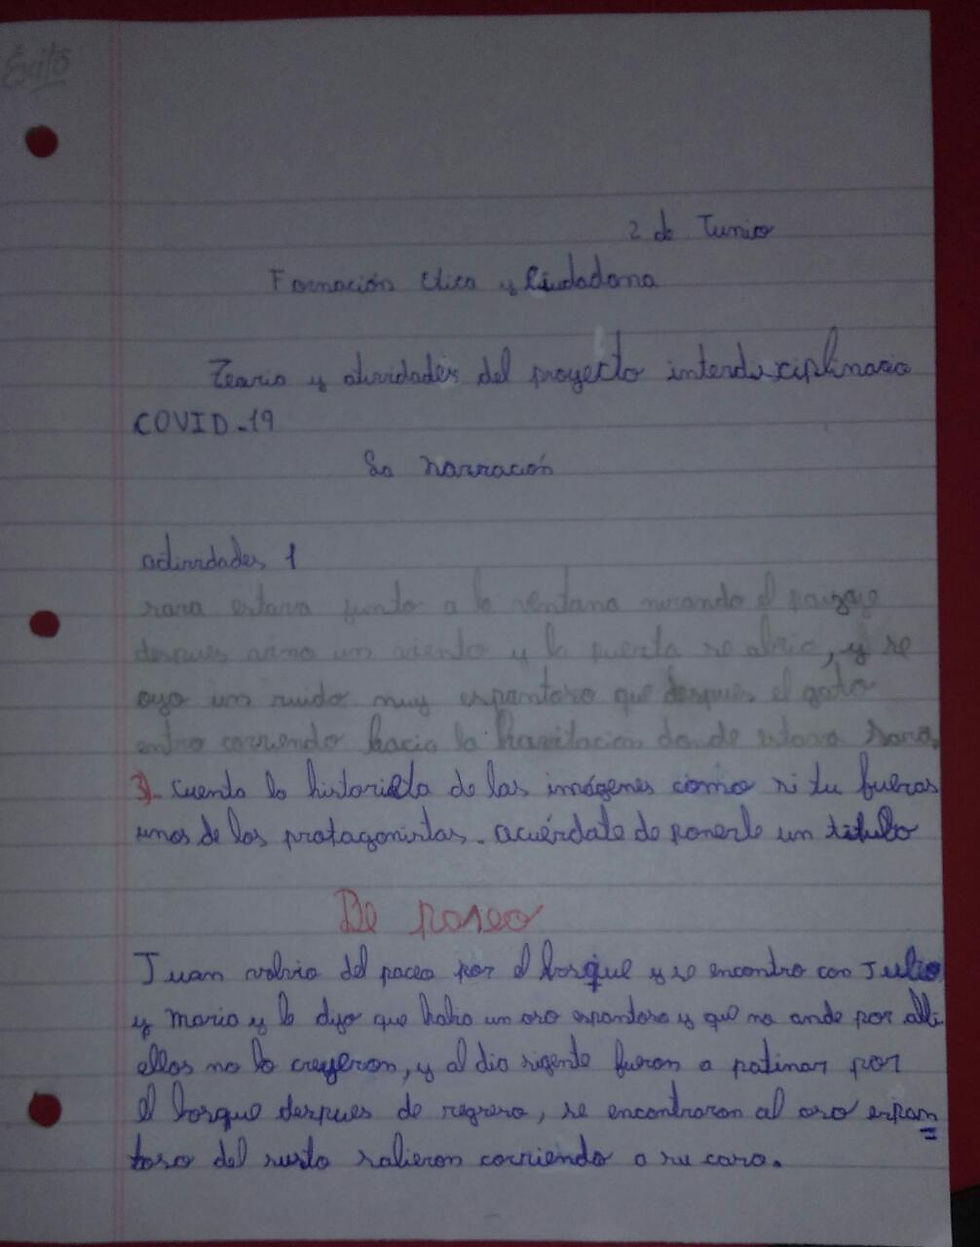 Éxito
2 de Junio
Formación Etica y Ciudadana
Teoria y atividades del proyecto interdisciplinario
COVID-19
La narración
actividades 1
sara estava junto a la ventana mirando el paizaje
despues vino un viento y la puerta se abrio, y se
oyo un ruido muy espantoso que despues el gato
entro corriendo hacia la havitacion donde estava Sara.
3). cuenta la historieta de las imágenes como si tu fueras
unos de los protagonistas. acuérdate de ponerle un titulo
De paseo
Juan volvio del paceo por el bosque y se encontro con Julio
y mario y le dijo que un oso espantoso y que no ande por alli.
ellos no lo creyeron, y al dia sigente fueron a patinar por
el bosque despues de regreso, se encontraron al oso espan
toso del susto salieron corriendo a su casa.